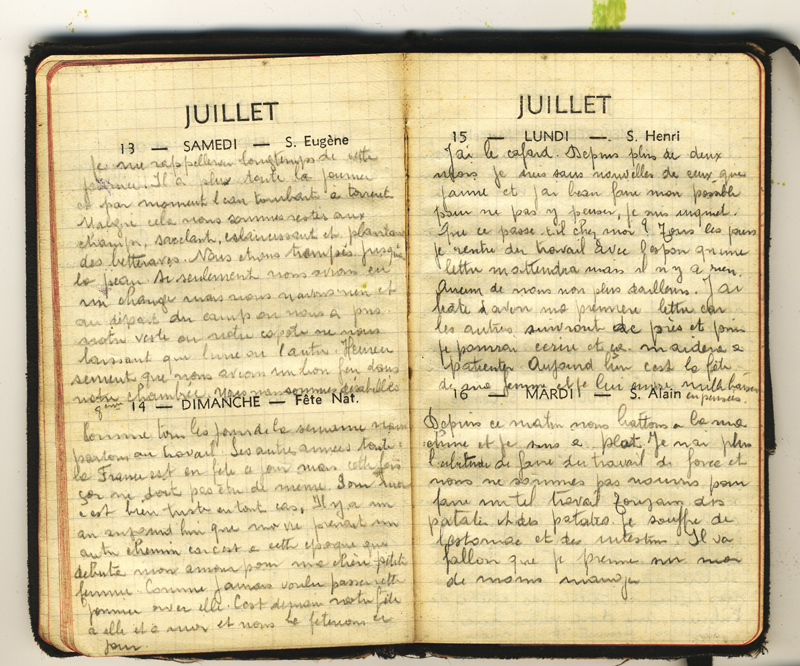 JUILLET
13 — SAMEDI — S. Eugène
Je me rappellerai longtemps de cette
journée. Il a plus toute la journée
et par moment l'eau tombait a torrent
Malgré cela nous sommes restés aux
champs, sarclant, eclaircissant et plantant
des betteraves. Nous étions trempés jusqu'a
la peau si seulement nous avions eu
un change mais nous n'avons rien et
au départ du camp on nous a pris
notre veste ou notre capote ou nous
laissant que l'une ou l'autre. Heureu
sement que nous avions un bon feu dans
notre chambrée. Nous nous sommes déshabillés
14 — DIMANCHE — Fête Nat.
Comme tous les jours de la semaine nous
partons au travail. Les autres années toute
la France est en fête ce jour mais cette fois
ça ne doit pas être de meme. Pour moi
c'est bien triste en tout cas, Il y a un
an aujourd'hui que ma vie prenait un
autre chemin car c'est a cette époque que
débuta mon amour pour ma chère petite
femme. Comme j'aurais voulu passer cette
journée avec elle. C'est demain notre fête
a elle et a moi et nous la fêterions ce
jour.
JUILLET
15 — LUNDI — S. Henri
J'ai le cafard. Depuis plus de deux
mois je suis sans nouvelles de ceux que
j'aime et j'ai beau faire mon possible
pour ne pas y penser, je suis inquiet.
Que ce passe-t-il chez moi ? Tous les jours
je rentre du travail avec l'espoir qu'une
lettre m'attendra mais il n'y a rien.
Aucun de nous non plus d'ailleurs. J'ai
hate d'avoir ma première lettre car
les autres suivront de près et puis
je pourrai ecrire et ça m'aidera a
patienter. Aujourd'hui c'est la fête
de ma femme et je lui envoie mille baisers
en pensées.
16 — MARDI — S. Alain
Depuis ce matin nous battons a la ma
chine et je suis a plat. Je n'ai plus
l'habitude de faire du travail de force et
nous ne sommes pas nourris pour
faire un tel travail Toujours des
patates et des patates. Je souffre de
l'estomac et des intestins. Il va
falloir que je prenne sur moi
de moins manger